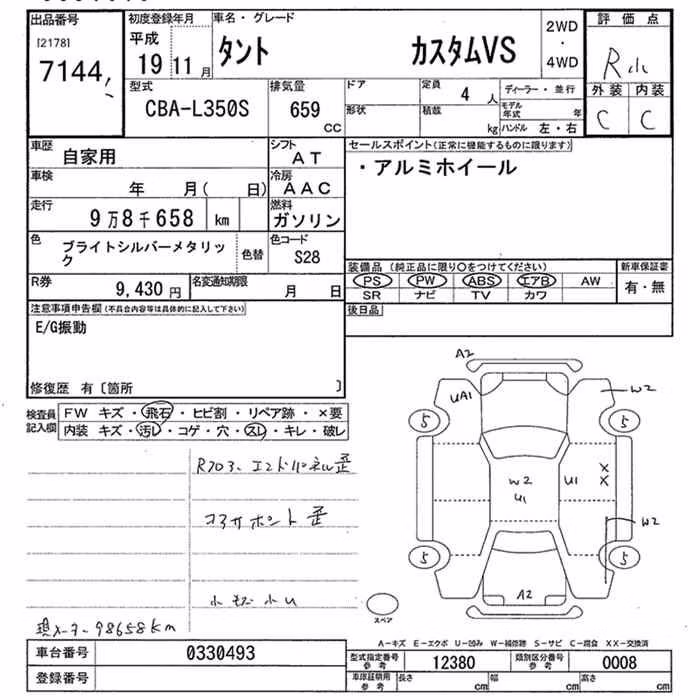 出品番号
[2178]
7144
初度登録年月
平成
19 11月
車名・グレード
タント カスタムVS
2WD
・
4WD
評価点
R
外装 内装
C C
型式
CBA-L350S
排気量
659
CC
ドア
形状
定員
4 人
積載
kg
ディーラー・並行
モデル年式 年
ハンドル 左・右
車歴
自家用
シフト
AT
車検
年 月( 日)
冷房
AAC
走行
9万8千658 km
燃料
ガソリン
色
ブライトシルバーメタリック
色替
色コード
S28
R券
9,430 円
名変通知期限
月 日
セールスポイント(正常に機能するものに限ります)
・アルミホイール
装備品(純正品に限り〇をつけてください)
PS PW ABS エアB AW
SR ナビ TV カワ
新車保証書
有・無
後日品
注意事項申告欄(不具合内容等は具体的に記入して下さい)
E/G振動
修復歴 有〔箇所 〕
検査員記入欄
FW キズ・飛石・ヒビ割・リペア跡・×要
内装 キズ・汚レ・コゲ・穴・スレ・キレ・破レ
R703、エンドパネル歪
コアサポート歪
現メーター 98658km
A2
UA1
W2
5
5
W2
U1
U1
X
X
W2
5
5
A2
スペア
A-キズ E-エクボ U-凹み W-補修跡 S-サビ C-腐食 XX-交換済
車台番号
0330493
登録番号
型式指定番号
参考
12380
類別区分番号
参考
0008
車庫証明用
参考
長さ cm
幅 cm
高さ cm